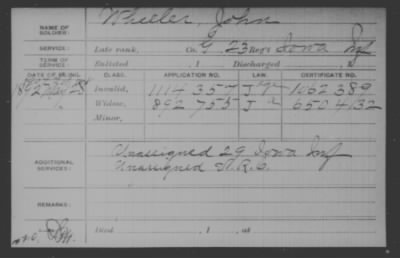 NAME OF SOLDIER: Wheeler, John
SERVICE: Late rank, Co. G, 23 Reg't Iowa Inf
TERM OF SERVICE: Enlisted , 1 Discharged , 1
DATE OF FILING. CLASS. APPLICATION NO. LAW. CERTIFICATE NO.
Invalid, 1114 357 J 1062 389
Widow, 892 755 J 650 4132
Minor,
ADDITIONAL SERVICES: Unassigned 29 Iowa Inf
Unassigned V.R.C.
REMARKS:
Died , 1 , at